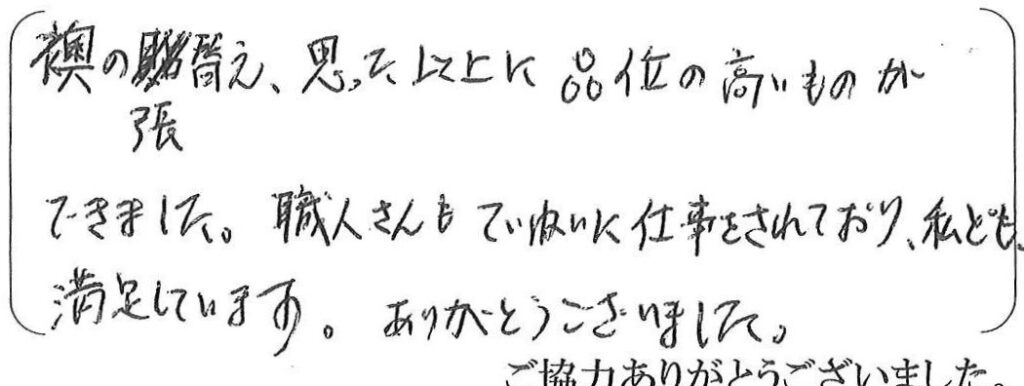 襖の張替え、思った以上に品位の高いものが
できました。職人さんもていねいに仕事をされており、私ども、
満足しています。ありがとうございました。
ご協力ありがとうございました。